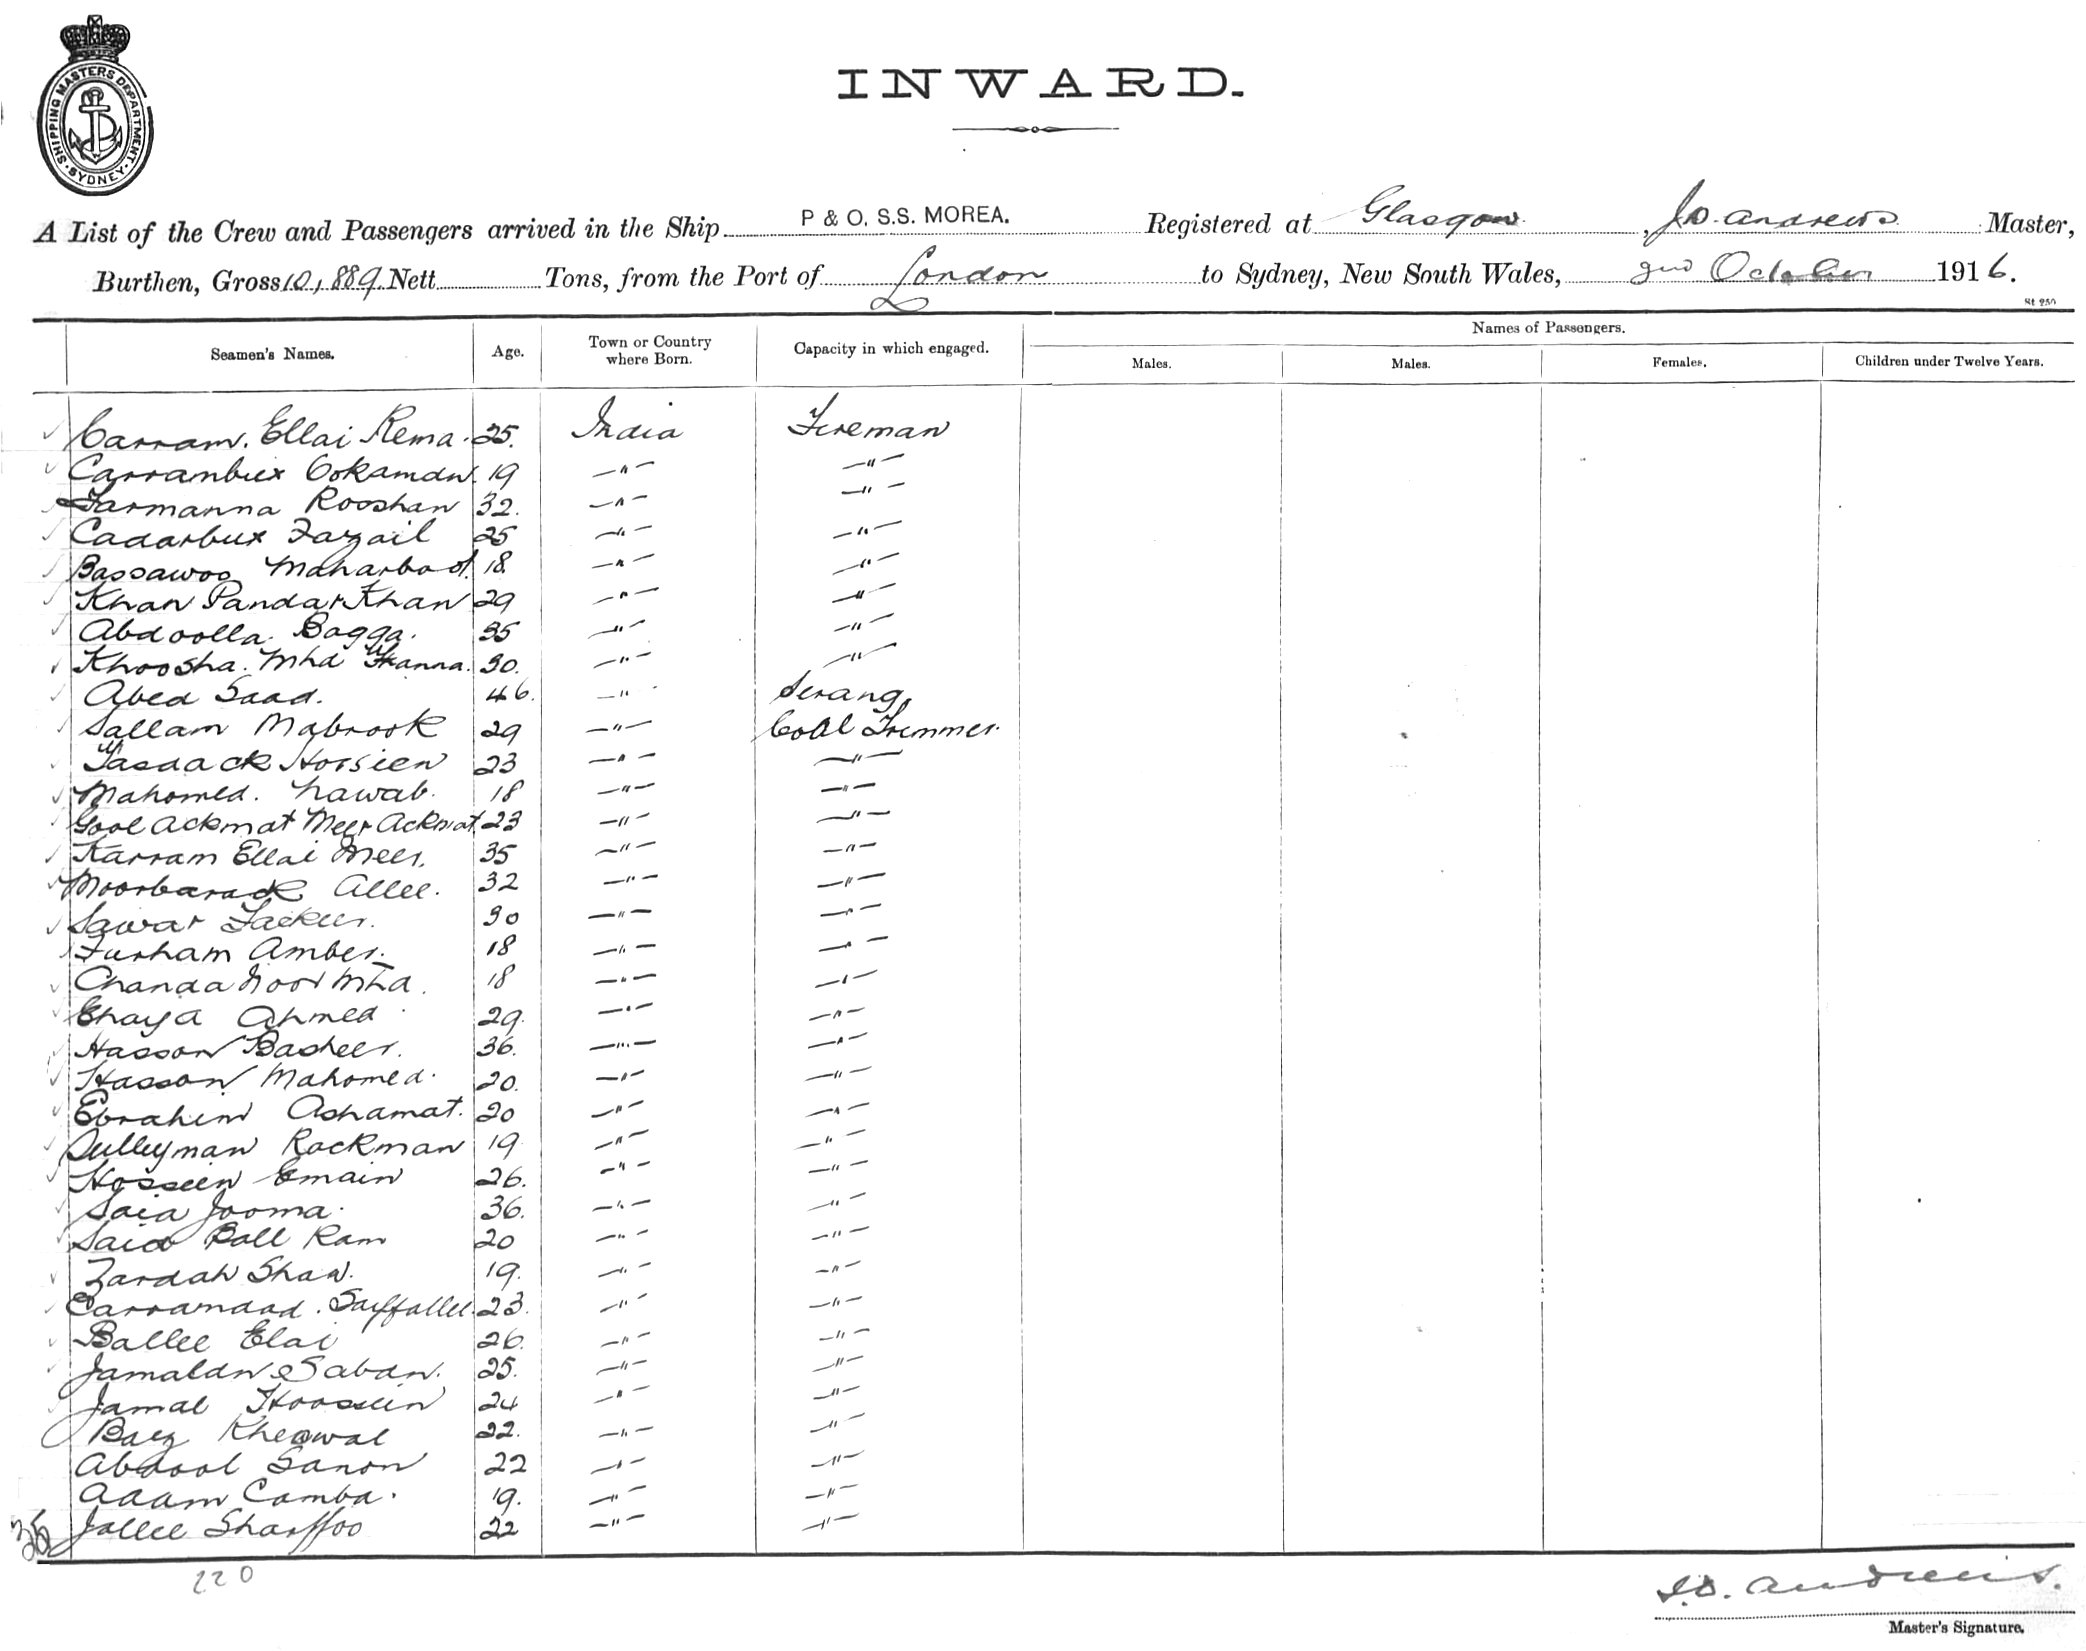 SHIPPING MASTERS DEPARTMENT. SYDNEY
INWARD.
A List of the Crew and Passengers arrived in the Ship P & O. S.S. MOREA. Registered at Glasgow, J.D. Andrews Master,
Burthen, Gross 10,889 Nett Tons, from the Port of London to Sydney, New South Wales, 2nd October 1916.
St 250
Names of Passengers.
Seamen's Names. Age. Town or Country where Born. Capacity in which engaged. Males. Males. Females. Children under Twelve Years.
Carram. Ellai Rema. 25. India Fireman
Carrambux Ookamdn. 19 —"— —"—
Farmanna Rooshan 32. —"— —"—
Cadarbux Fazail 25 —"— —"—
Bassawoo 18. —"— —"—
Khan Pandar Khan 29 —"— —"—
Abdoolla. Bagga. 35 —"— —"—
Khoosha. Mhd 30. —"— —"—
Abed Saad. 46. —" Serang.
Sallam Mabrook 29 —"— Coal Trimmer.
Hossien 23 —"— —"—
Mahomed. Nawab. 18 —"— —"—
Gool Ackmat Meer Ackmat 23 —"— —"—
Karram Ellai Meer. 35 —"— —"—
Moorbarack Allee. 32 —"— —"—
Sawar Fackeer. 30 —"— —"—
Furham Amber. 18 —"— —"—
Chanda Noor Mhd. 18 —"— —"—
Ehaya Ahmed 29. —"— —"—
Hasson Basheer. 36. —"— —"—
Hasson Mahomed. 20. —"— —"—
Ebrahim Ashamat. 20 —"— —"—
Sulleyman Rackman 19 —"— —"—
Hosseen Emain 26. —"— —"—
Said Jooma. 36. —"— —"—
Said Ball Ram 20 —"— —"—
Zardah Shaw. 19. —"— —"—
Carramdad. Sayfallee. 23. —"— —"—
Ballee Elai 26. —"— —"—
Jamaldn Saban. 25. —"— —"—
Jamal Hoossein 24 —"— —"—
Baez 22. —"— —"—
Abdool Sanon 22 —"— —"—
Adam Camba. 19. —"— —"—
35 Jallee Sharffoo 22 —"— —"—
220
J.D. Andrews.
Master's Signature.